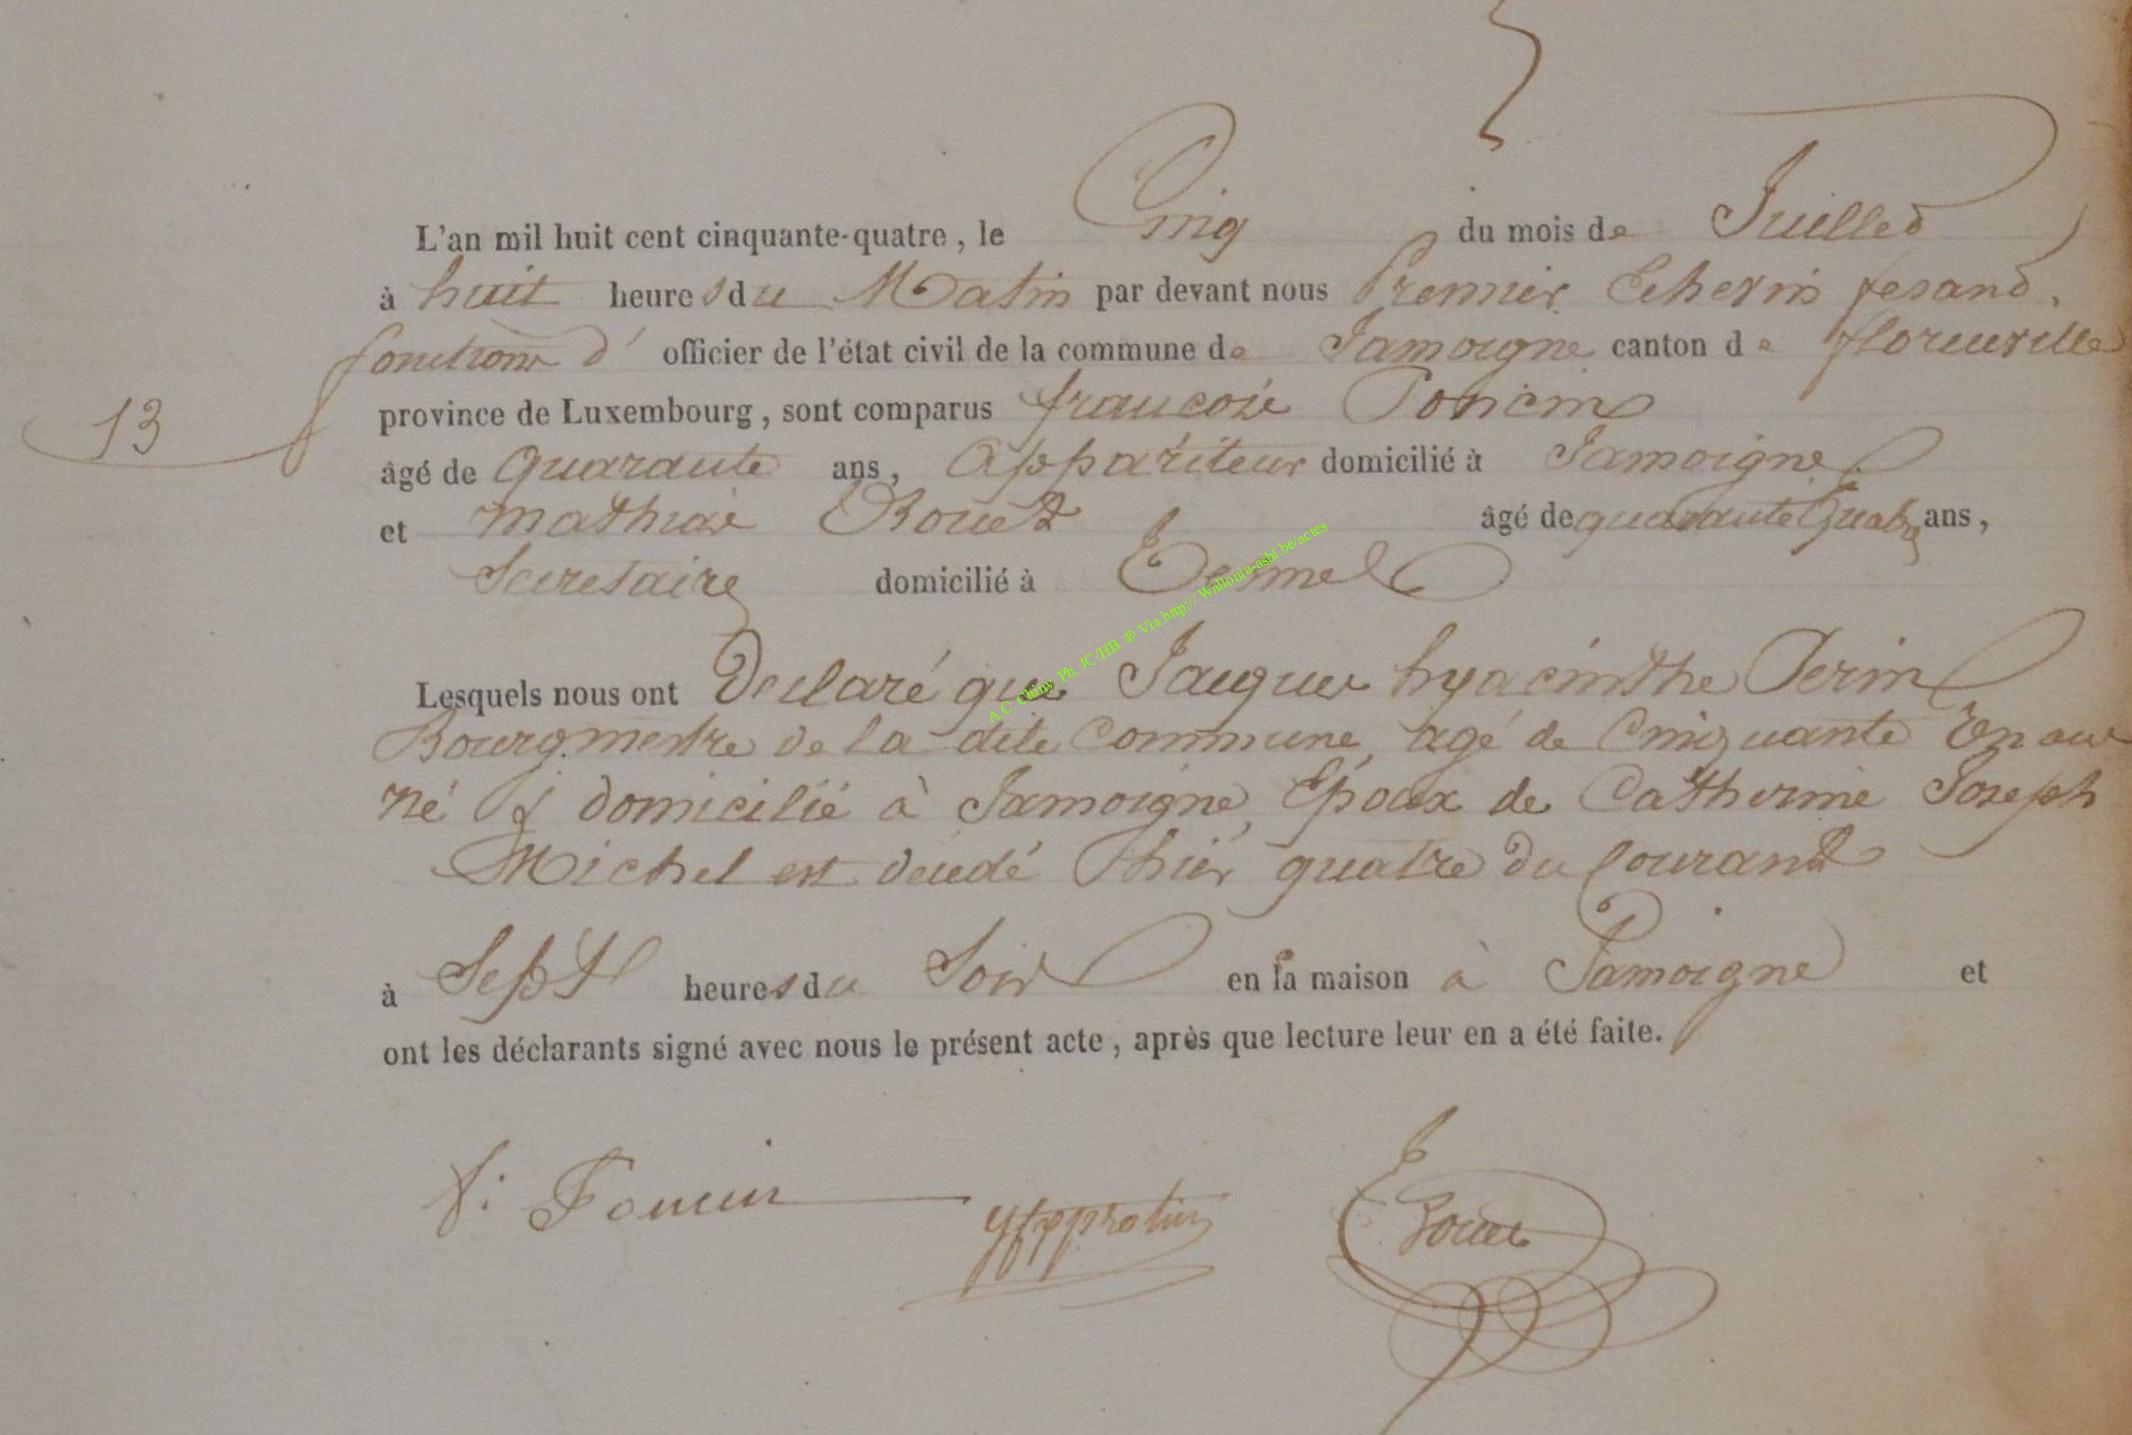 L'an mil huit cent cinquante-quatre, le Cinq du mois de Juillet
à huit heures du Matin par devant nous Premier Echevin fesand
fonctions d' officier de l'état civil de la commune de Jamoigne canton de florenville
13 province de Luxembourg, sont comparus francois Poncin
âgé de quarante ans, appariteur domicilié à Jamoigne
et mathias Rouet âgé de quarante Quatre ans,
Secretaire domicilié à
Lesquels nous ont Declaré que Jacques hyacinthe Perin
Bourgmestre de la dite Commune, agé de Cinquante Un ans
né & domicilié à Jamoigne, Epoux de Catherine Joseph
Michel est decedé hier quatre du Courant
à Sept heures du Soir en la maison à Jamoigne et
ont les déclarants signé avec nous le présent acte, après que lecture leur en a été faite.
f: Poncin Rouet
A.C. Chiny Ph. JC/HB ® Via http:// Wallonia-asbl.be/actes